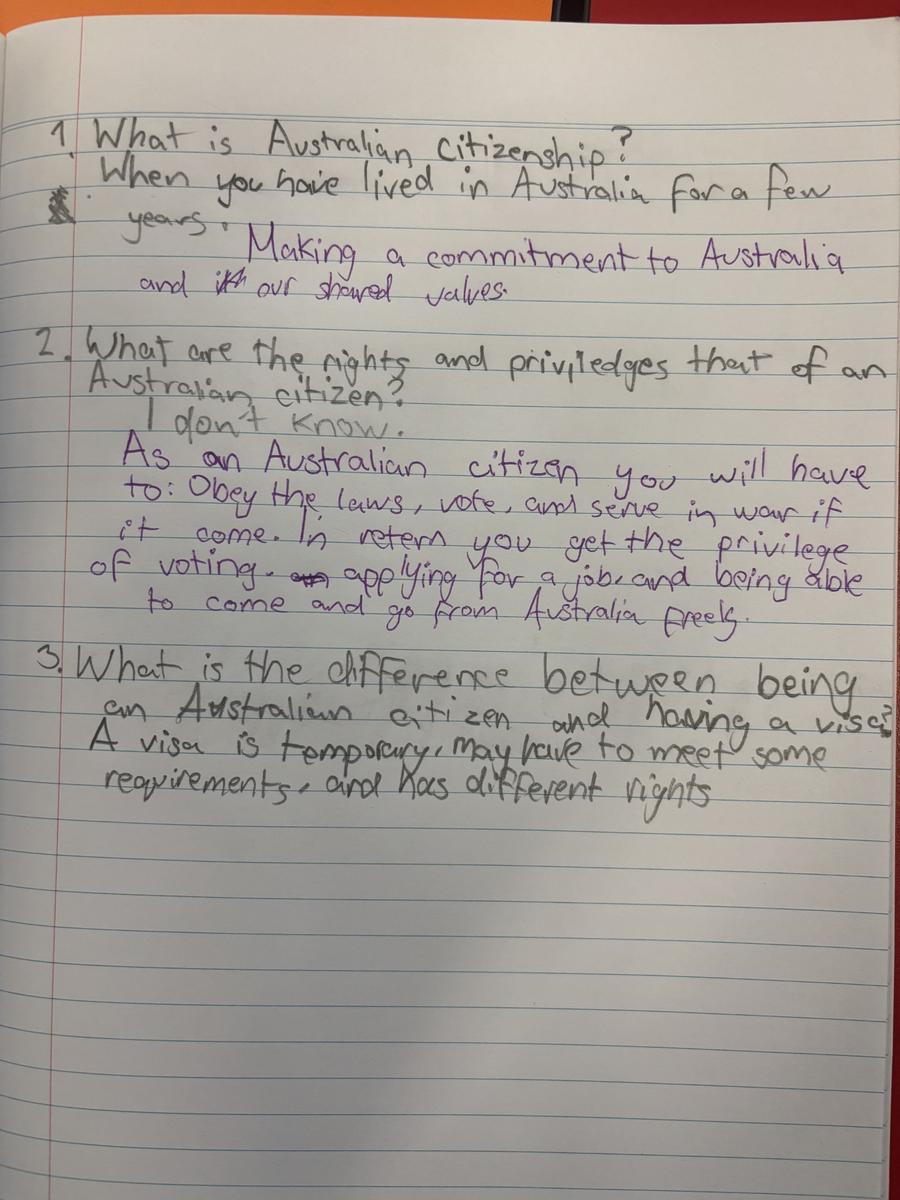 1. What is Australian citizenship?
When you have lived in Australia for a few
years. Making a commitment to Australia
and our shared values.
2. What are the rights and priviledges that of an
Australian citizen?
I don't know.
As an Australian citizen you will have
to: Obey the laws, vote, and serve in war if
it come. In retern you get the privilege
of voting. applying for a job, and being able
to come and go from Australia freely.
3. What is the difference between being
an Australian citizen and having a visa?
A visa is temporary, may have to meet some
requirements, and has different rights